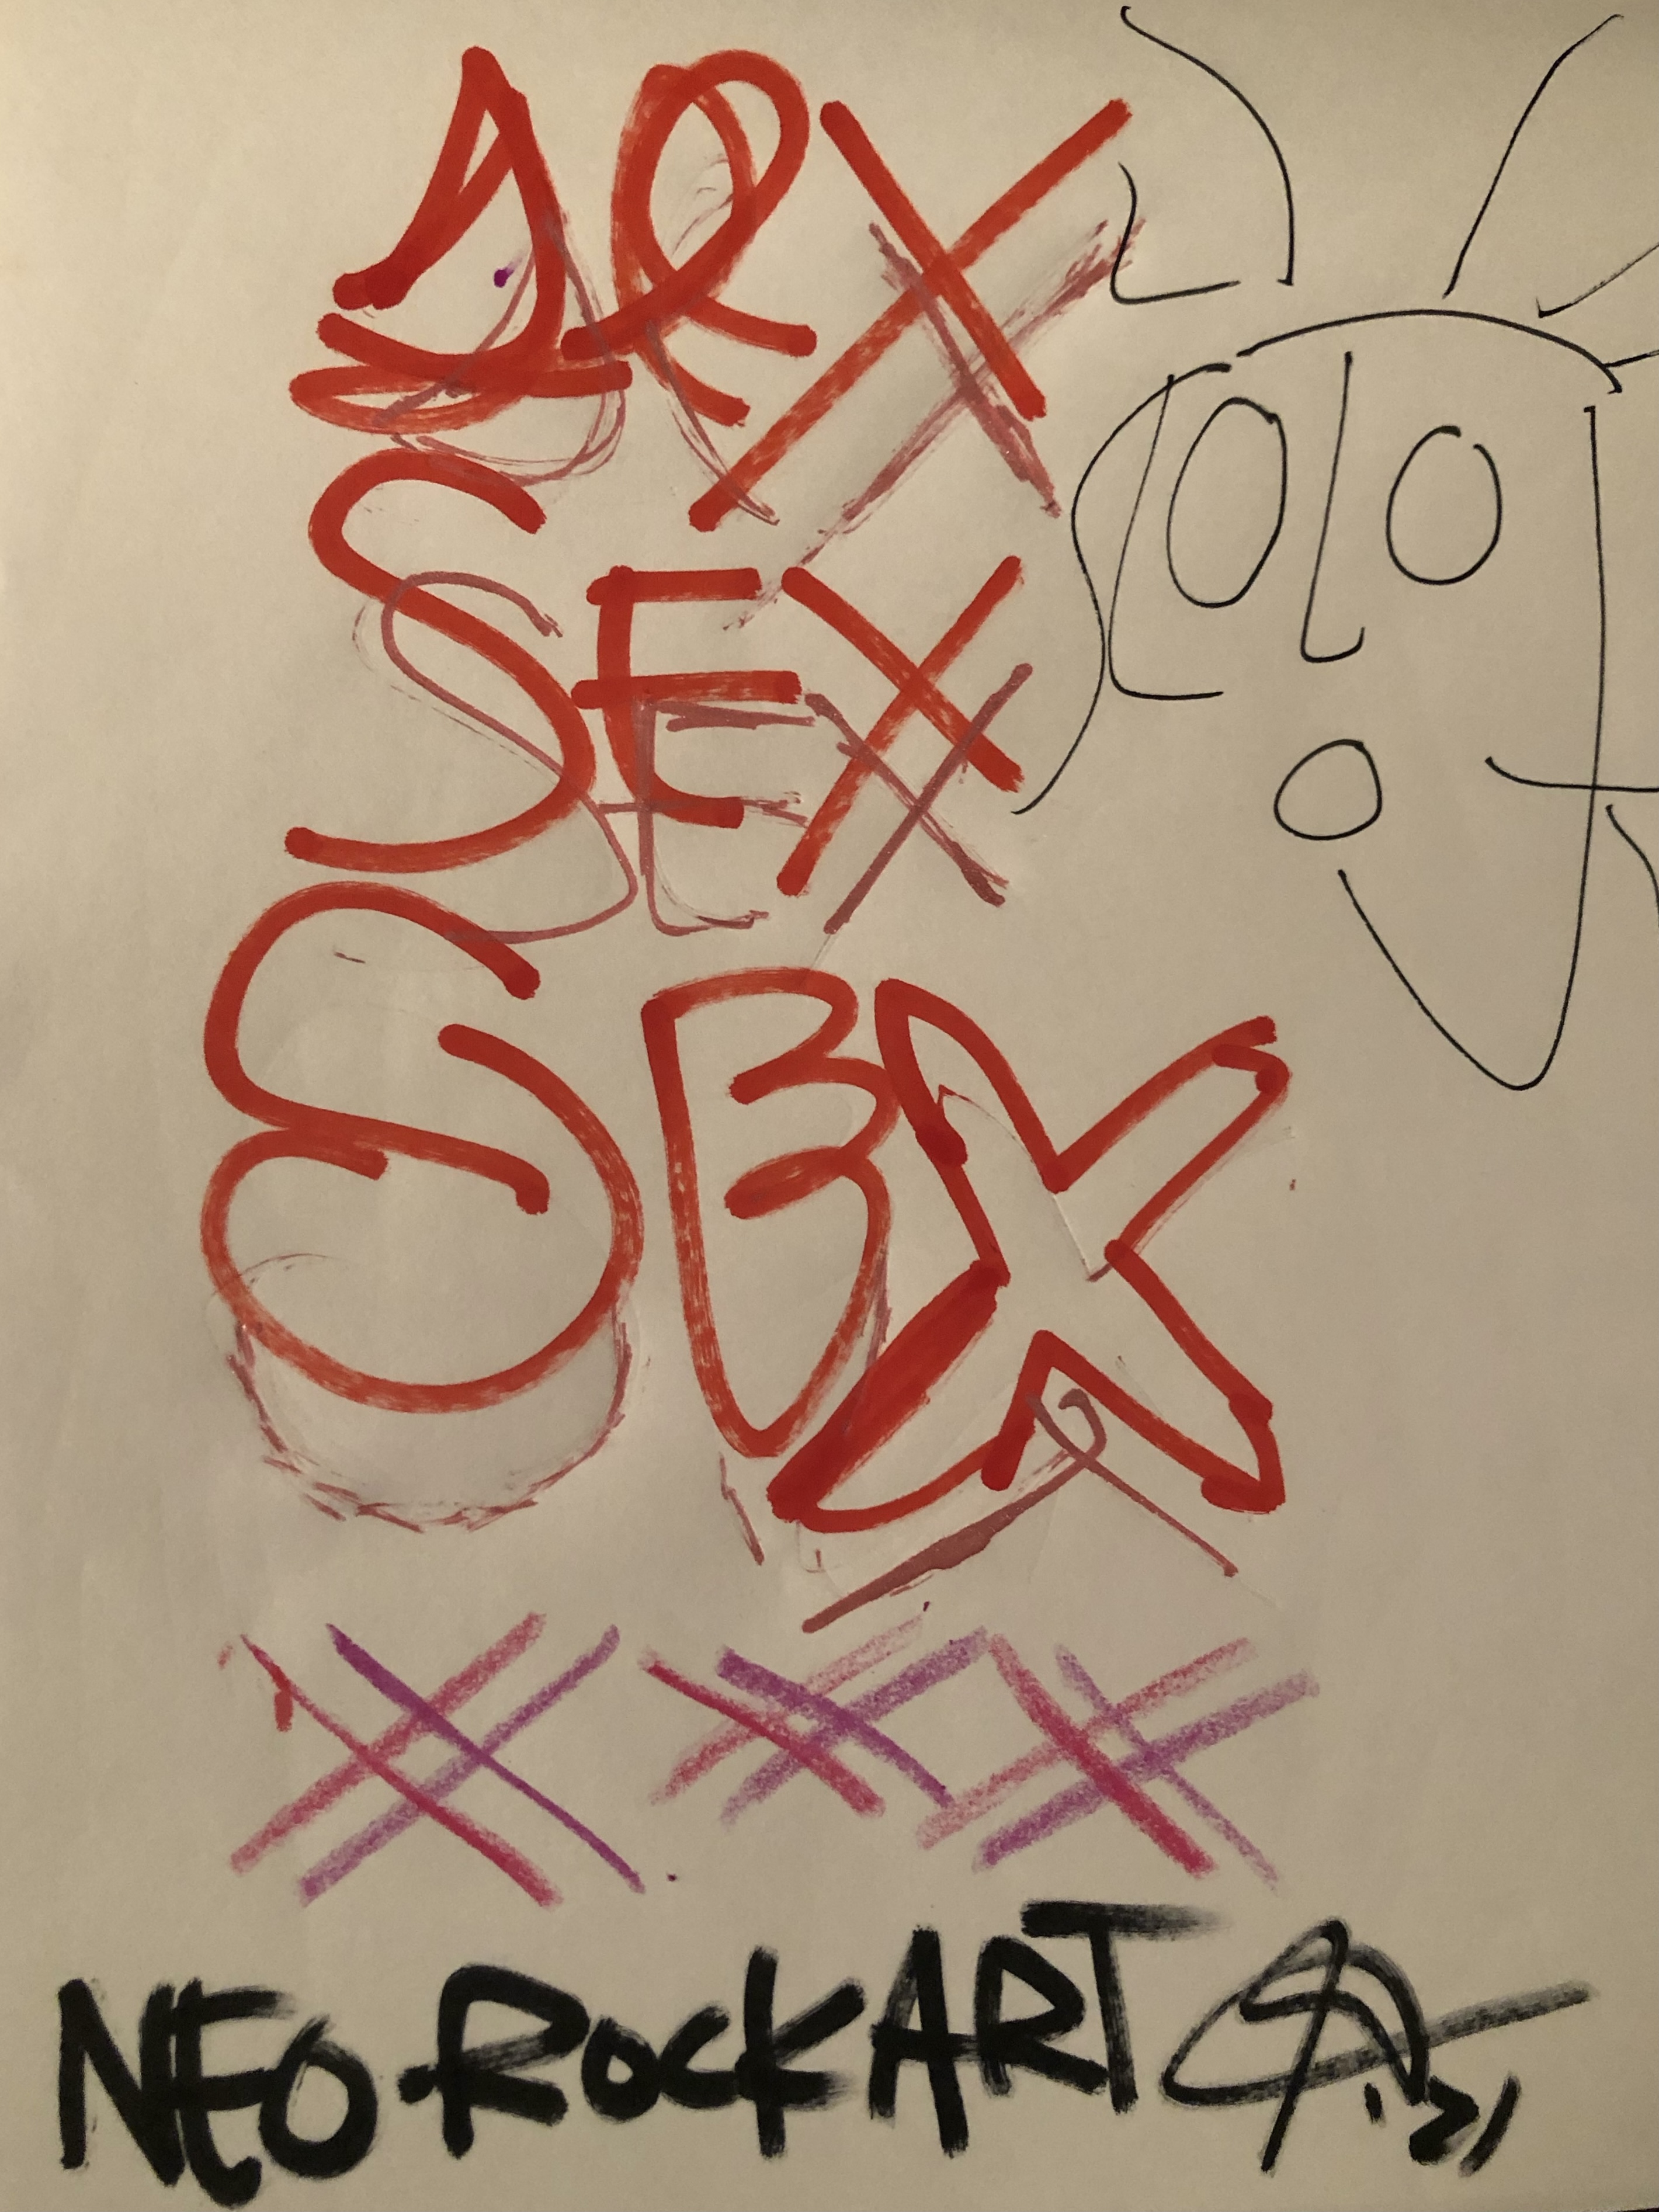 sex
SEX
SEX
XXX
NEO ROCK ART '21